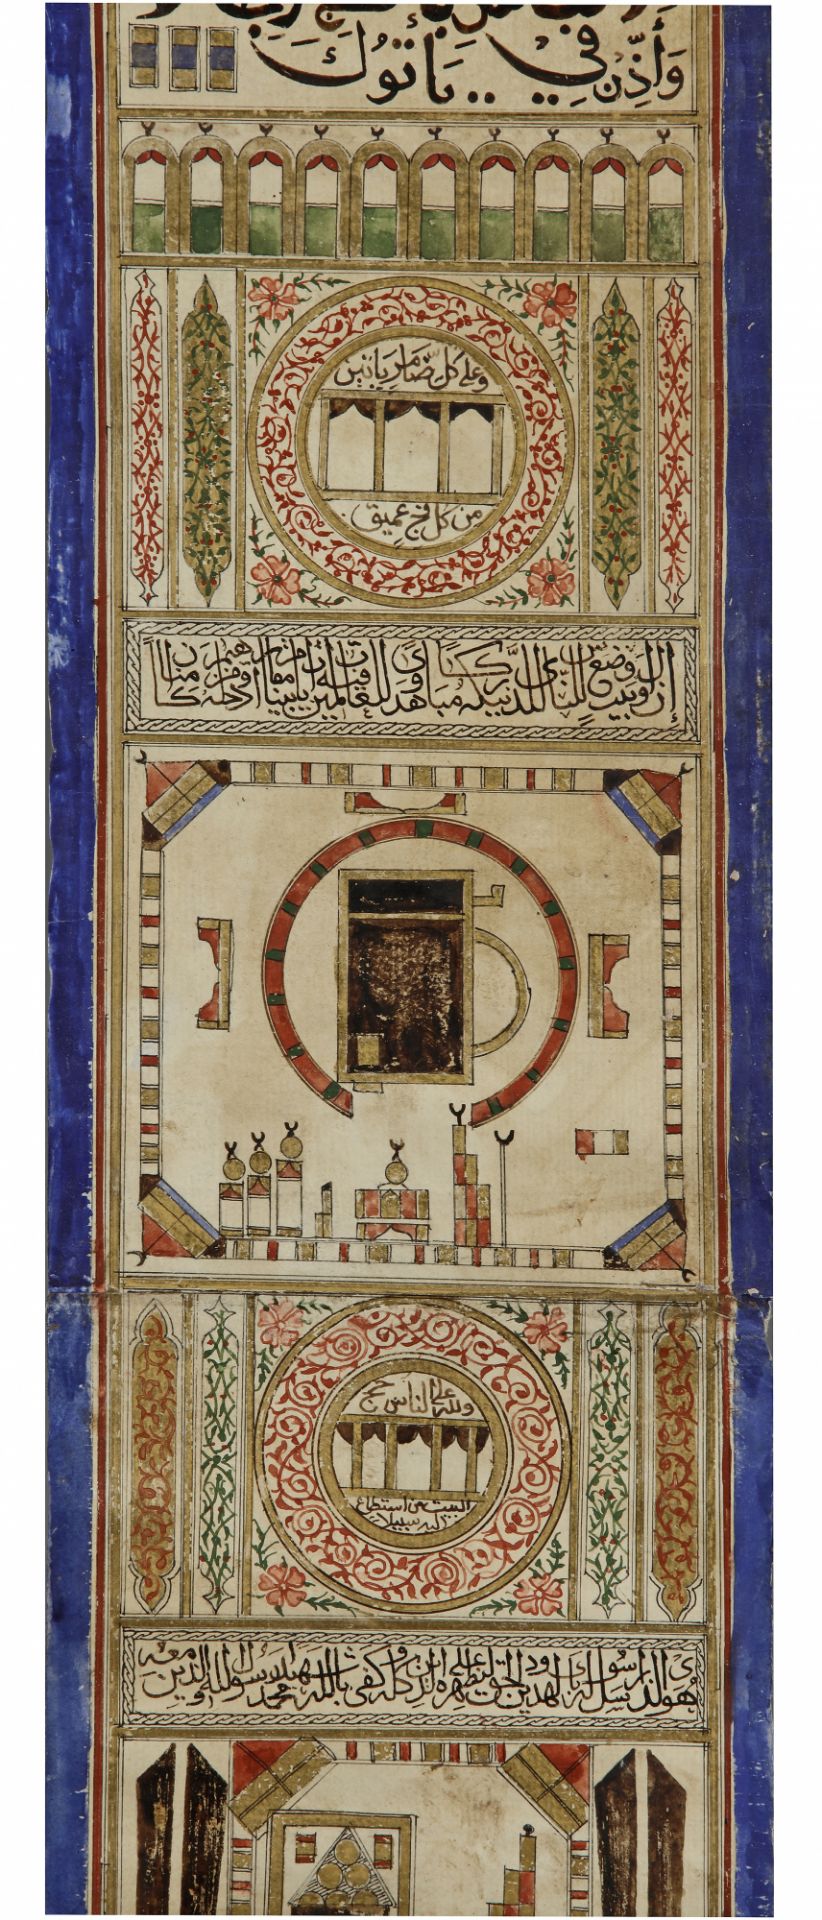 وَأَذِّن فِي يَأْتُوكَ
وعلى كل ضامر يأتين
من كل فج عميق
إن أول بيت وضع للناس للذي ببكة مباركا وهدى للعالمين فيه آيات بينات مقام إبراهيم ومن دخله كان آمنا
ولله على الناس حج
البيت من استطاع
إليه سبيلا
هو الذي أرسل رسوله بالهدى ودين الحق ليظهره على الدين كله وكفى بالله شهيدا محمد رسول الله والذين معه